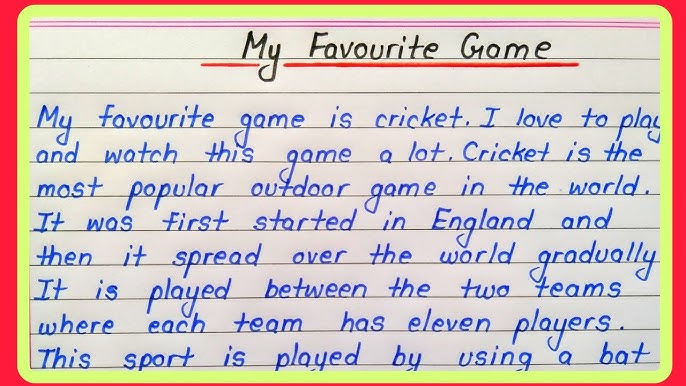 My Favourite Game
My favourite game is cricket. I love to play
and watch this game a lot. Cricket is the
most popular outdoor game in the world.
It was first started in England and
then it spread over the world gradually
It is played between the two teams
where each team has eleven players.
This sport is played by using a bat